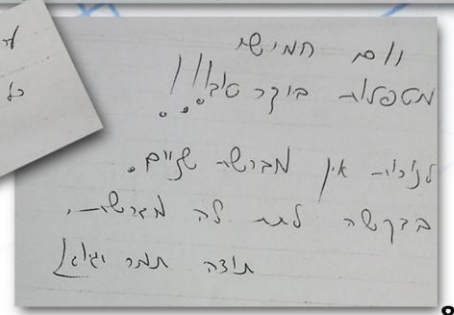 יום חמישי
מטפלות בוקר טוב!!!
אין מברשת שניים.
בבקשה לתת לה מברשת.
תודה תמר
כל